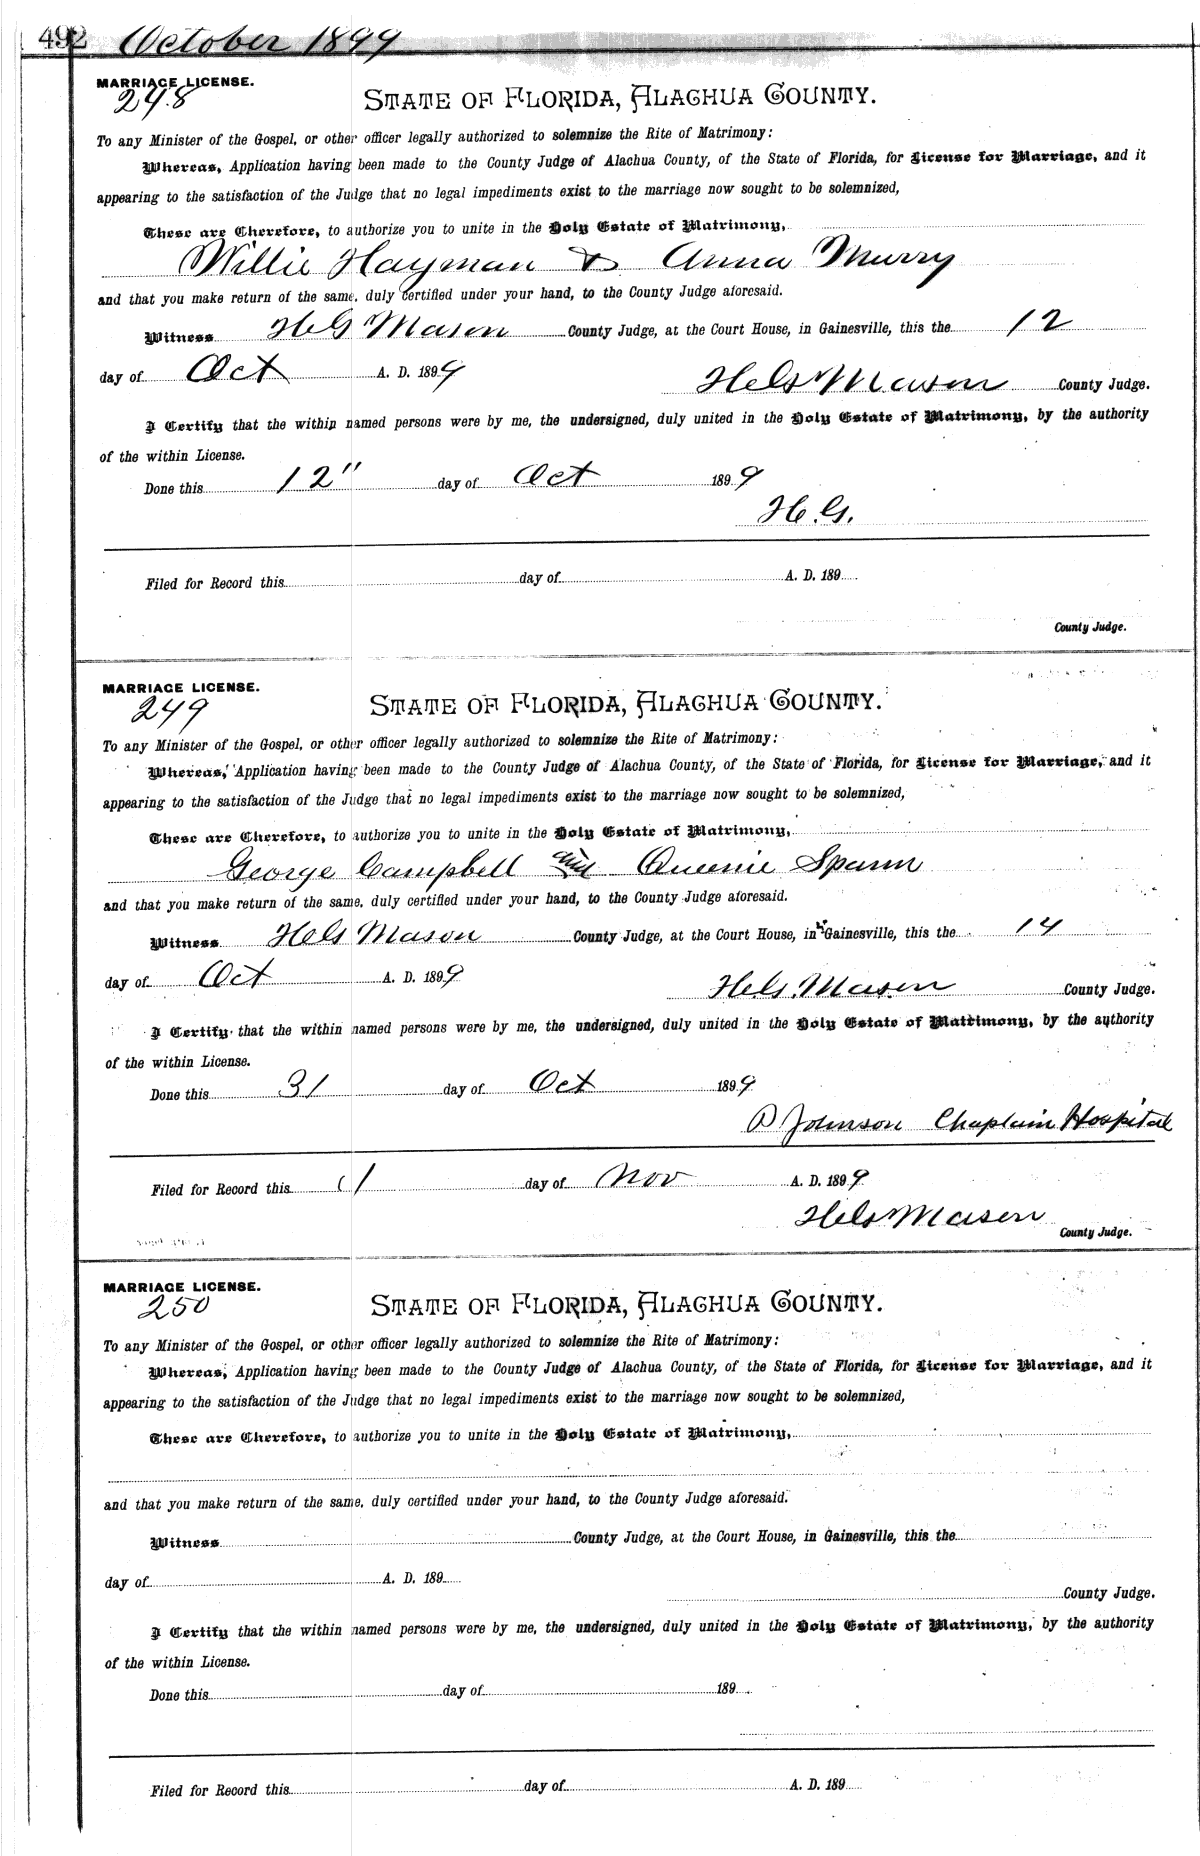 492 October 1899
MARRIAGE LICENSE.
248
STATE OF FLORIDA, ALACHUA COUNTY.
To any Minister of the Gospel, or other officer legally authorized to solemnize the Rite of Matrimony:
Whereas, Application having been made to the County Judge of Alachua County, of the State of Florida, for License for Marriage, and it
appearing to the satisfaction of the Judge that no legal impediments exist to the marriage now sought to be solemnized,
These are Therefore, to authorize you to unite in the Holy Estate of Matrimony,
Willie Hayman & Anna Murry
and that you make return of the same, duly certified under your hand, to the County Judge aforesaid.
Witness HG Mason County Judge, at the Court House, in Gainesville, this the 12
day of Oct A. D. 1899 HG Mason County Judge.
I Certify that the within named persons were by me, the undersigned, duly united in the Holy Estate of Matrimony, by the authority
of the within License.
Done this 12" day of Oct 1899
H.G.
Filed for Record this day of A. D. 189
County Judge.
MARRIAGE LICENSE.
249
STATE OF FLORIDA, ALACHUA COUNTY.
To any Minister of the Gospel, or other officer legally authorized to solemnize the Rite of Matrimony:
Whereas, Application having been made to the County Judge of Alachua County, of the State of Florida, for License for Marriage, and it
appearing to the satisfaction of the Judge that no legal impediments exist to the marriage now sought to be solemnized,
These are Therefore, to authorize you to unite in the Holy Estate of Matrimony,
George Campbell and Queenie Spann
and that you make return of the same, duly certified under your hand, to the County Judge aforesaid.
Witness HG Mason County Judge, at the Court House, in Gainesville, this the 14
day of Oct A. D. 1899 H.G. Mason County Judge.
I Certify that the within named persons were by me, the undersigned, duly united in the Holy Estate of Matrimony, by the authority
of the within License.
Done this 31 day of Oct 1899
P Johnson Chaplain Hospital
Filed for Record this 1 day of Nov A. D. 1899
HG Mason
County Judge.
MARRIAGE LICENSE.
250
STATE OF FLORIDA, ALACHUA COUNTY.
To any Minister of the Gospel, or other officer legally authorized to solemnize the Rite of Matrimony:
Whereas, Application having been made to the County Judge of Alachua County, of the State of Florida, for License for Marriage, and it
appearing to the satisfaction of the Judge that no legal impediments exist to the marriage now sought to be solemnized,
These are Therefore, to authorize you to unite in the Holy Estate of Matrimony,
and that you make return of the same, duly certified under your hand, to the County Judge aforesaid.
Witness County Judge, at the Court House, in Gainesville, this the
day of A. D. 189
County Judge.
I Certify that the within named persons were by me, the undersigned, duly united in the Holy Estate of Matrimony, by the authority
of the within License.
Done this day of 189
Filed for Record this day of A. D. 189